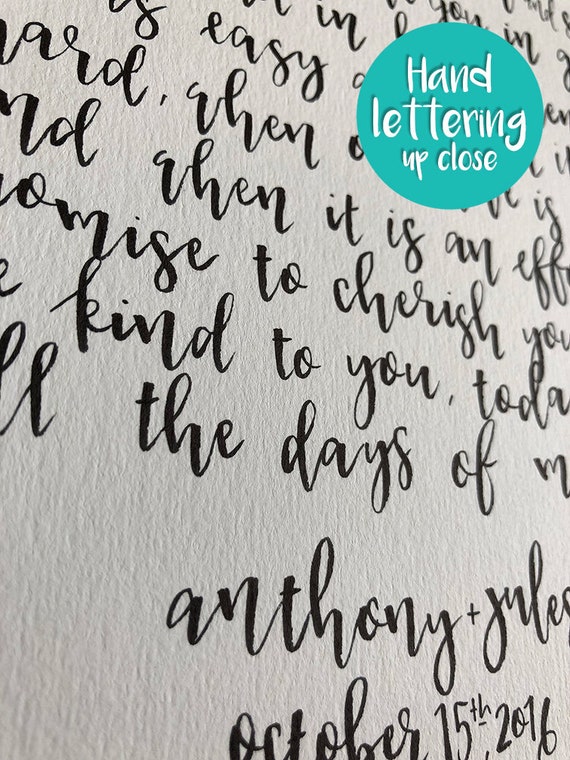 Hand
lettering
up close
in you in
is easy
hard, when
and when it is an eff
romise to cherish you
kind to you, today
all the days of m
anthony + jules
october 15th, 2016